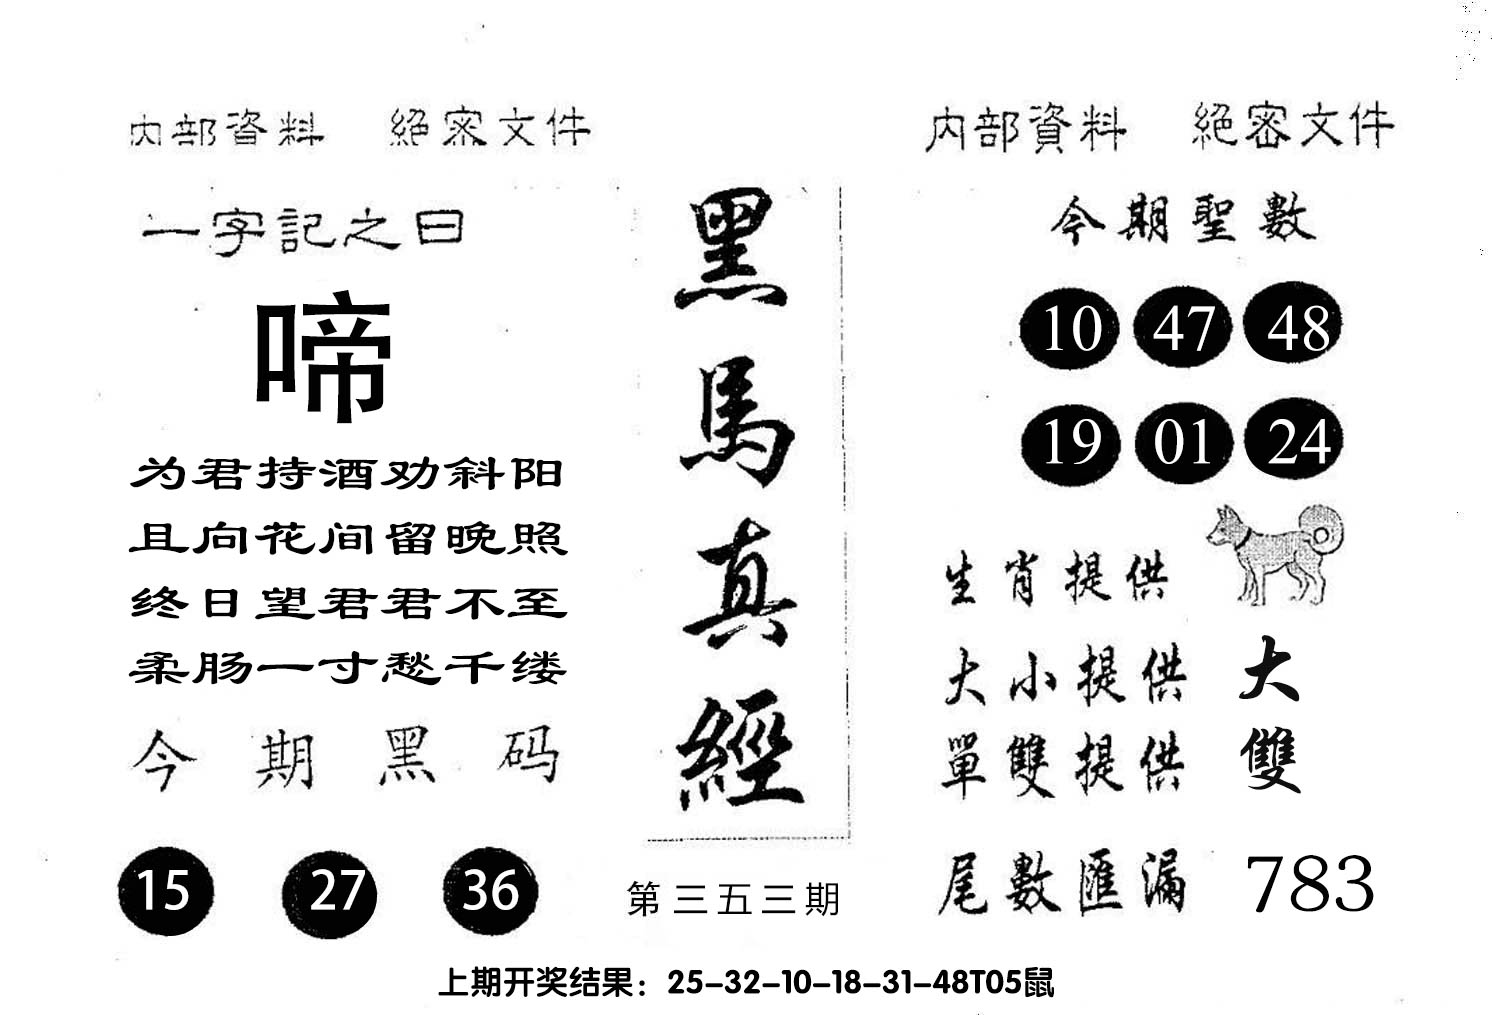 内部資料 絕密文件
一字記之曰
啼
为君持酒劝斜阳
且向花间留晚照
终日望君君不至
柔肠一寸愁千缕
今期黑码
15 27 36
黑馬真經
第三五三期
内部資料 絕密文件
今期聖數
10 47 48
19 01 24
生肖提供
大小提供 大
單雙提供 雙
尾數匯漏 783
上期开奖结果：25-32-10-18-31-48T05鼠